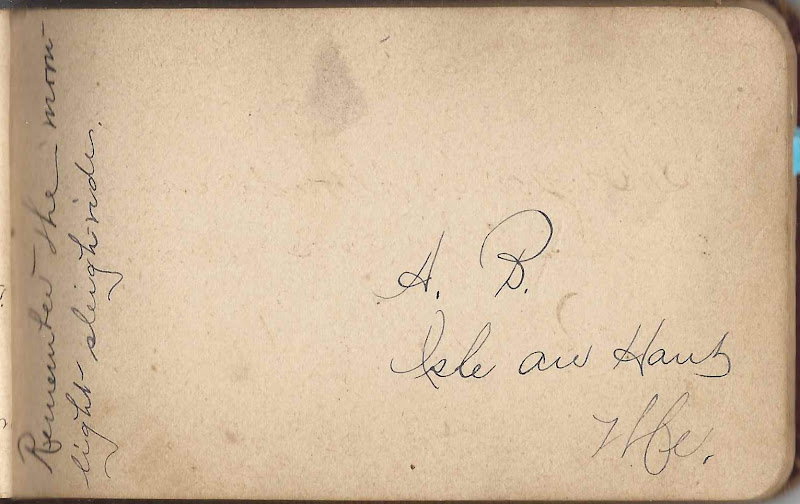 Remember the moon
light sleigh-ride.
A. B.
Isle au Haut
Me.